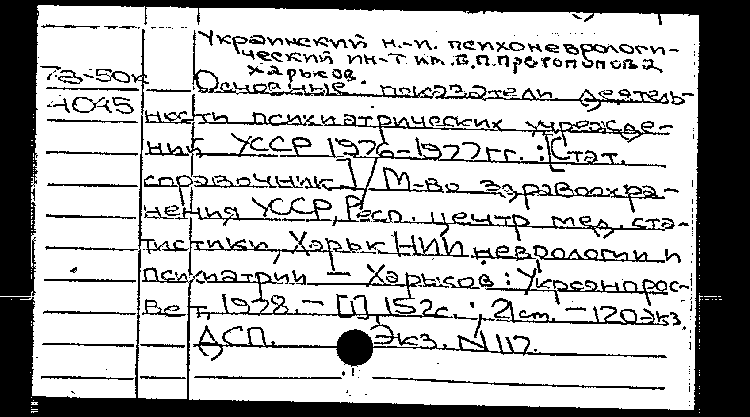 Украинский н.-и. психоневрологи-
ческий ин-т им. В.П.Протопопова
Харьков.
78-50к
Основные показатели деятель-
4045
ности психиатрических учрежде-
ний УССР 1976-1977 гг. : [Стат.
справочник] / М-во здравоохра-
нения УССР, Респ. центр мед. ста-
тистики, Харьк НИИ неврологии и
психиатрии — Харьков : Укроргпрос-
вет, 1978. — [], 152 с. ; 21 см. — 120 экз.
ДСП. Экз. N 117.